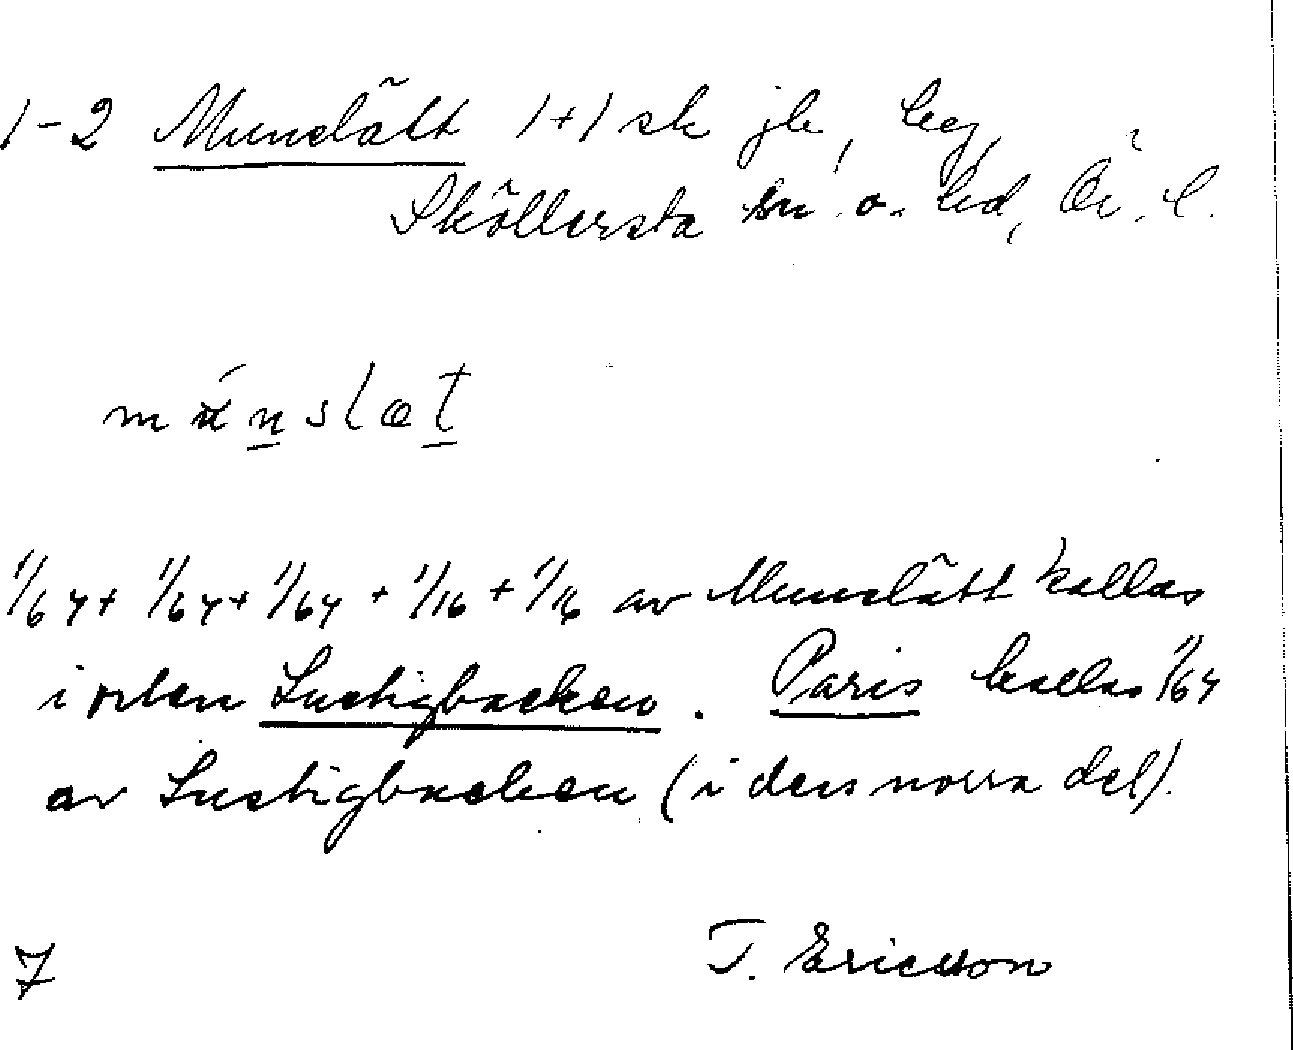 1-2 Munslätt 1+1 sk jb, beg,
Sköllersta sn o. hd, Ör. l.
1/64 + 1/64 + 1/64 + 1/16 + 1/16 av Munslätt kallas
i orten Lustigbacken. Paris kallas 1/64
av Lustigbacken (i dess norra del).
7 T. Ericsson